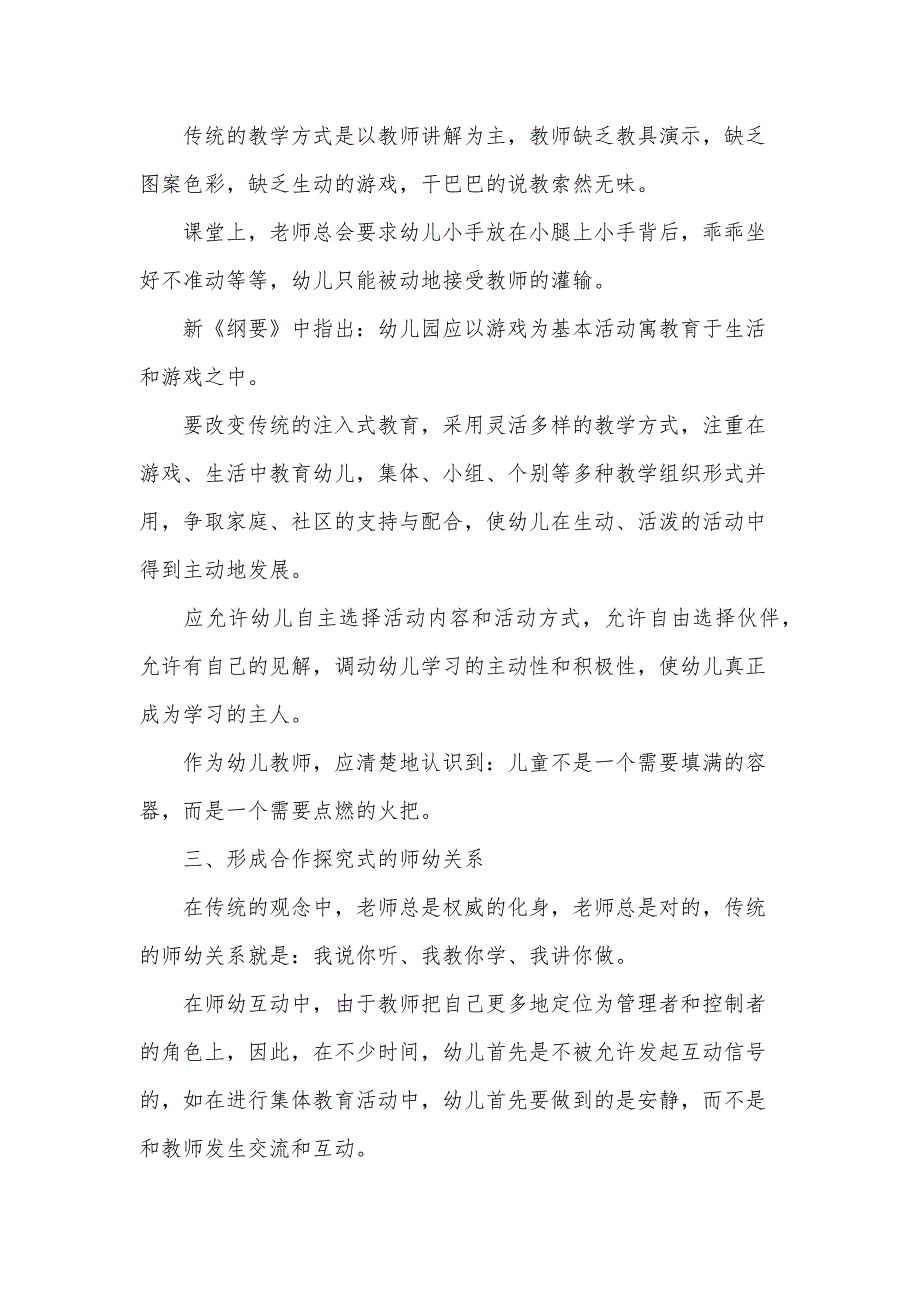 传统的教学方式是以教师讲解为主，教师缺乏教具演示，缺乏
图案色彩，缺乏生动的游戏，干巴巴的说教索然无味。
课堂上，老师总会要求幼儿小手放在小腿上小手背后，乖乖坐
好不准动等等，幼儿只能被动地接受教师的灌输。
新《纲要》中指出：幼儿园应以游戏为基本活动寓教育于生活
和游戏之中。
要改变传统的注入式教育，采用灵活多样的教学方式，注重在
游戏、生活中教育幼儿，集体、小组、个别等多种教学组织形式并
用，争取家庭、社区的支持与配合，使幼儿在生动、活泼的活动中
得到主动地发展。
应允许幼儿自主选择活动内容和活动方式，允许自由选择伙伴，
允许有自己的见解，调动幼儿学习的主动性和积极性，使幼儿真正
成为学习的主人。
作为幼儿教师，应清楚地认识到：儿童不是一个需要填满的容
器，而是一个需要点燃的火把。
三、形成合作探究式的师幼关系
在传统的观念中，老师总是权威的化身，老师总是对的，传统
的师幼关系就是：我说你听、我教你学、我讲你做。
在师幼互动中，由于教师把自己更多地定位为管理者和控制者
的角色上，因此，在不少时间，幼儿首先是不被允许发起互动信号
的，如在进行集体教育活动中，幼儿首先要做到的是安静，而不是
和教师发生交流和互动。